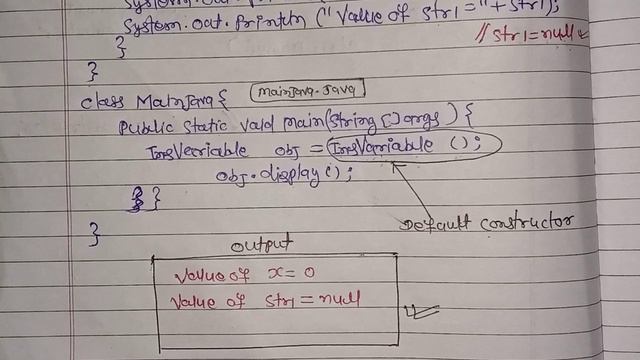 System.out.println ("Value of str1 = "+str1);
// str1=null
}
}
class MainJava{
MainJava.java
Public static void main(String[]args){
InsVariable obj = InsVariable ();
obj.display();
}
}
Default constructor
output
Value of x= 0
Value of str1 = null